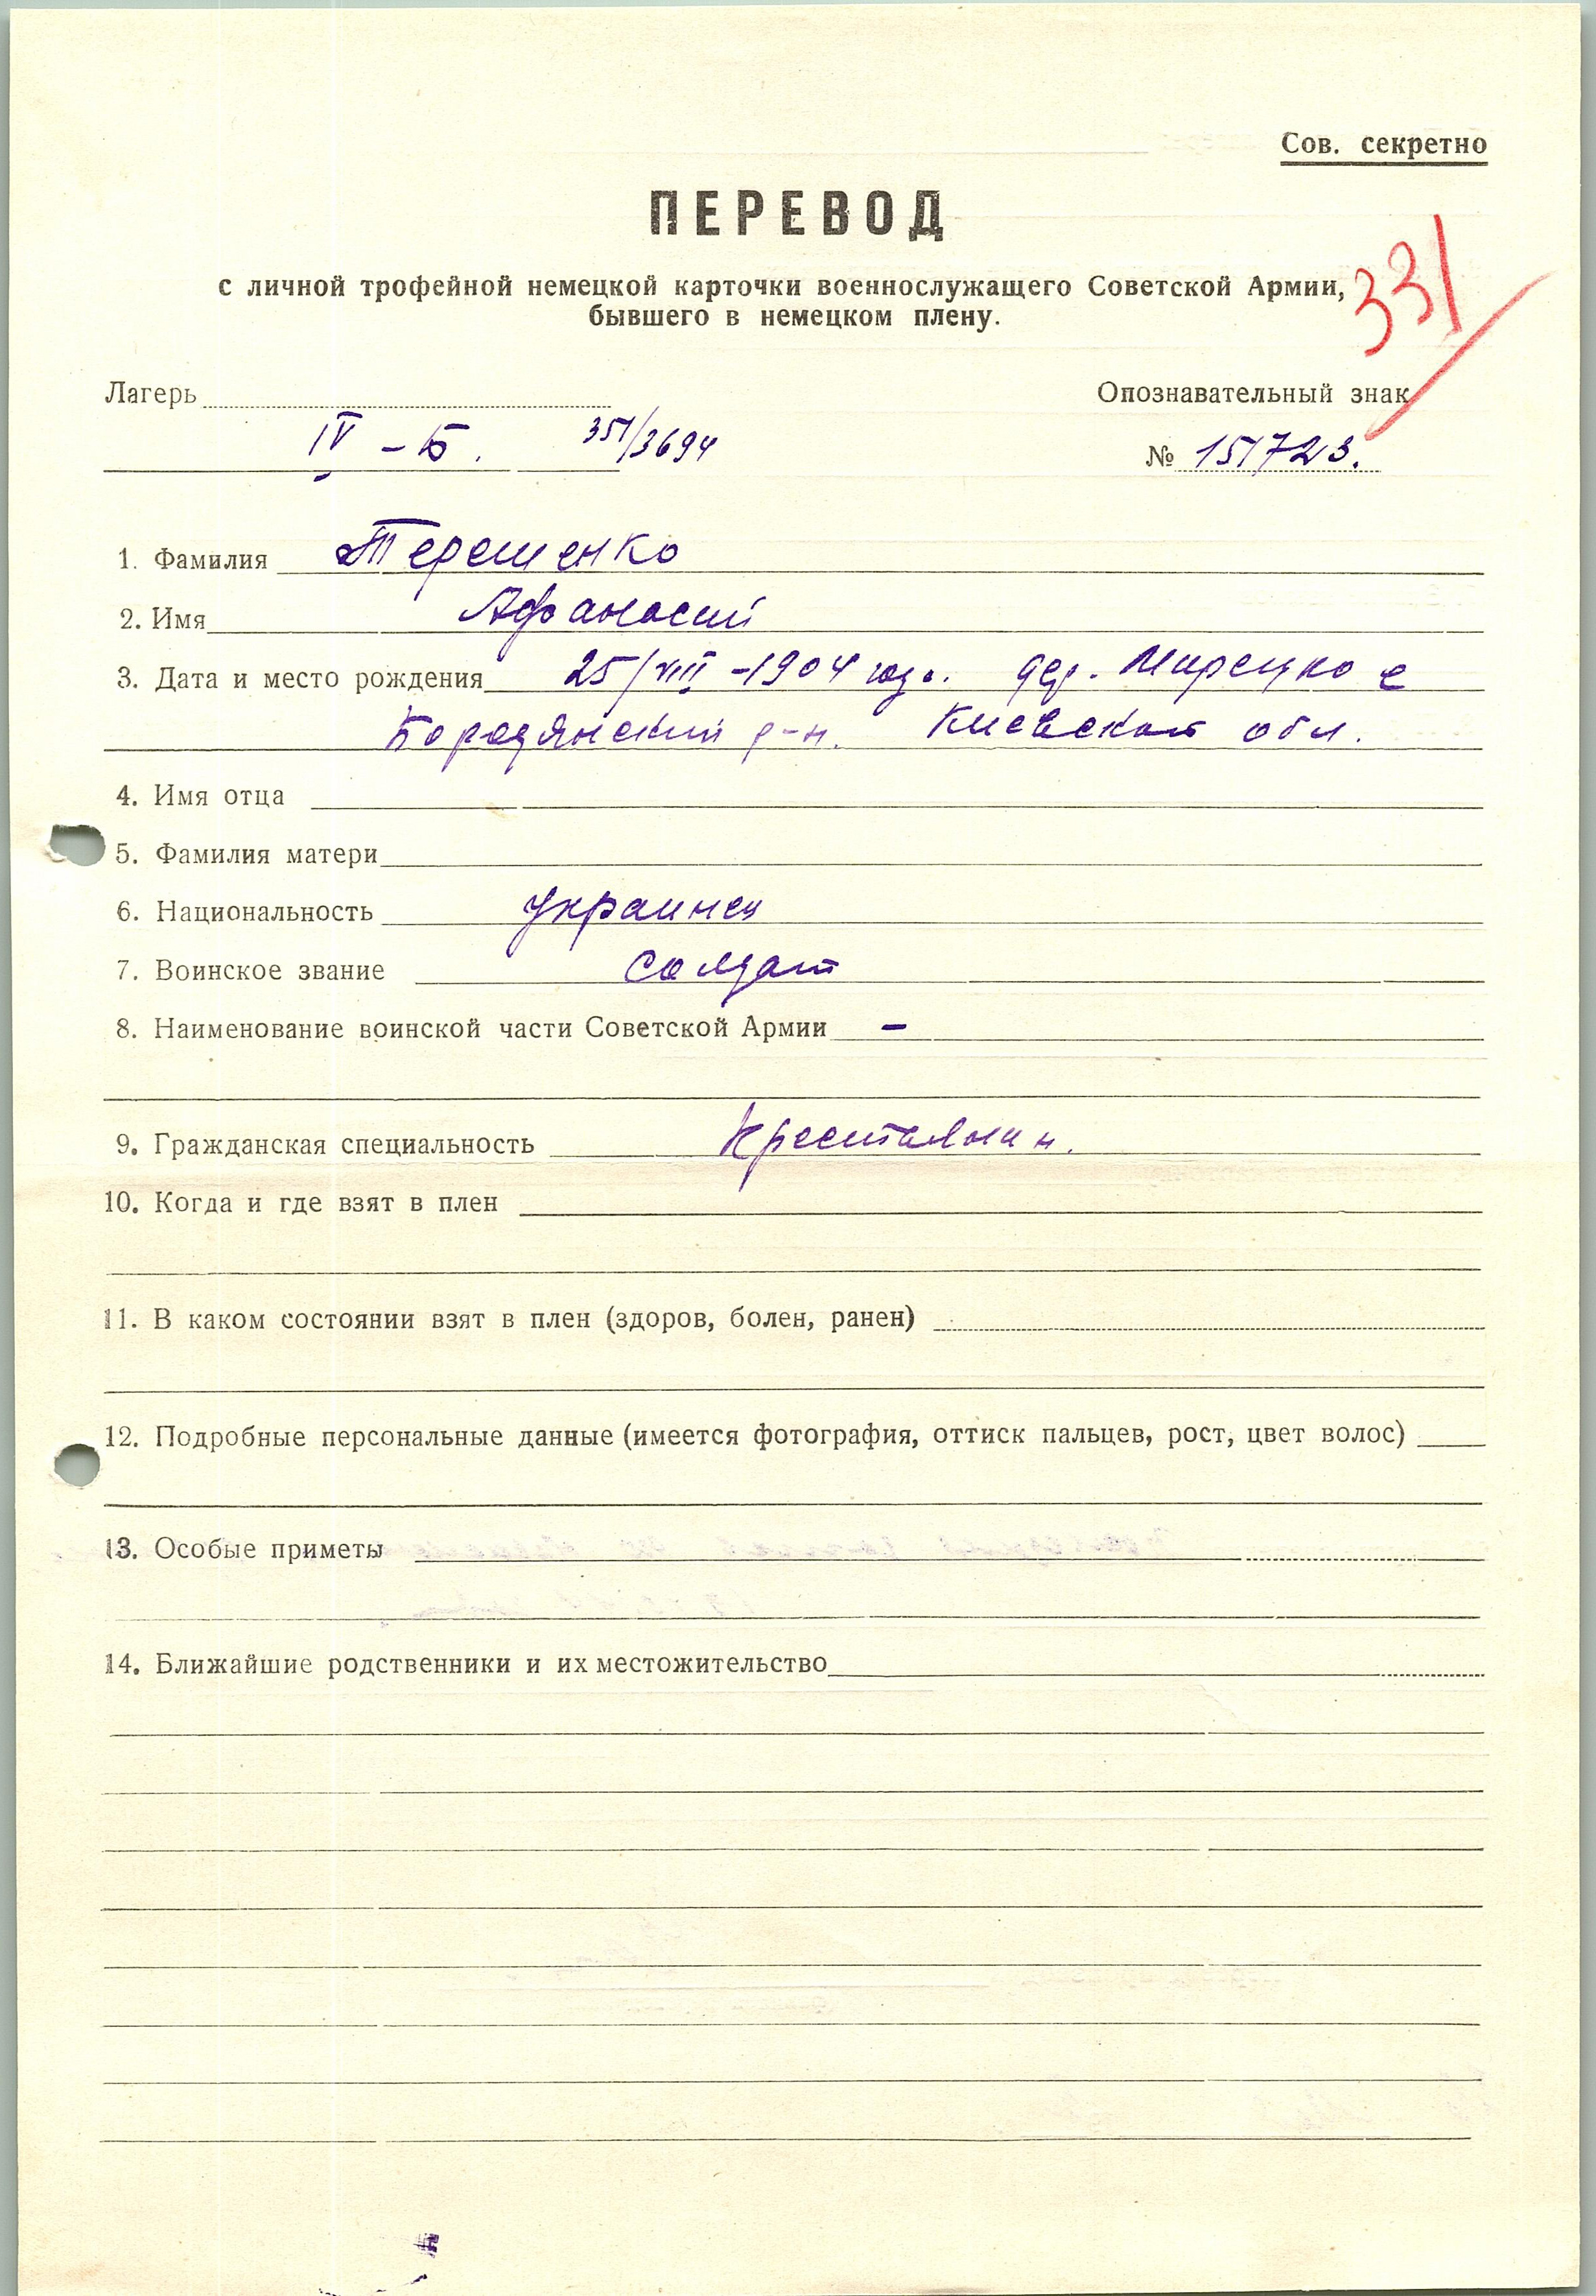 Сов. секретно
ПЕРЕВОД
331
с личной трофейной немецкой карточки военнослужащего Советской Армии,
бывшего в немецком плену.
Лагерь Опознавательный знак
IV – Б. 351/3694 № 151723.
1. Фамилия Терешенко
2. Имя Афанасий
3. Дата и место рождения 25/VIII -1904 год. дер. Мирецкое
Бородянский р-н. Киевская обл.
4. Имя отца
5. Фамилия матери
6. Национальность украинец
7. Воинское звание солдат
8. Наименование воинской части Советской Армии –
9. Гражданская специальность Крестьянин.
10. Когда и где взят в плен
11. В каком состоянии взят в плен (здоров, болен, ранен)
12. Подробные персональные данные (имеется фотография, оттиск пальцев, рост, цвет волос)
13. Особые приметы
14. Ближайшие родственники и их местожительство